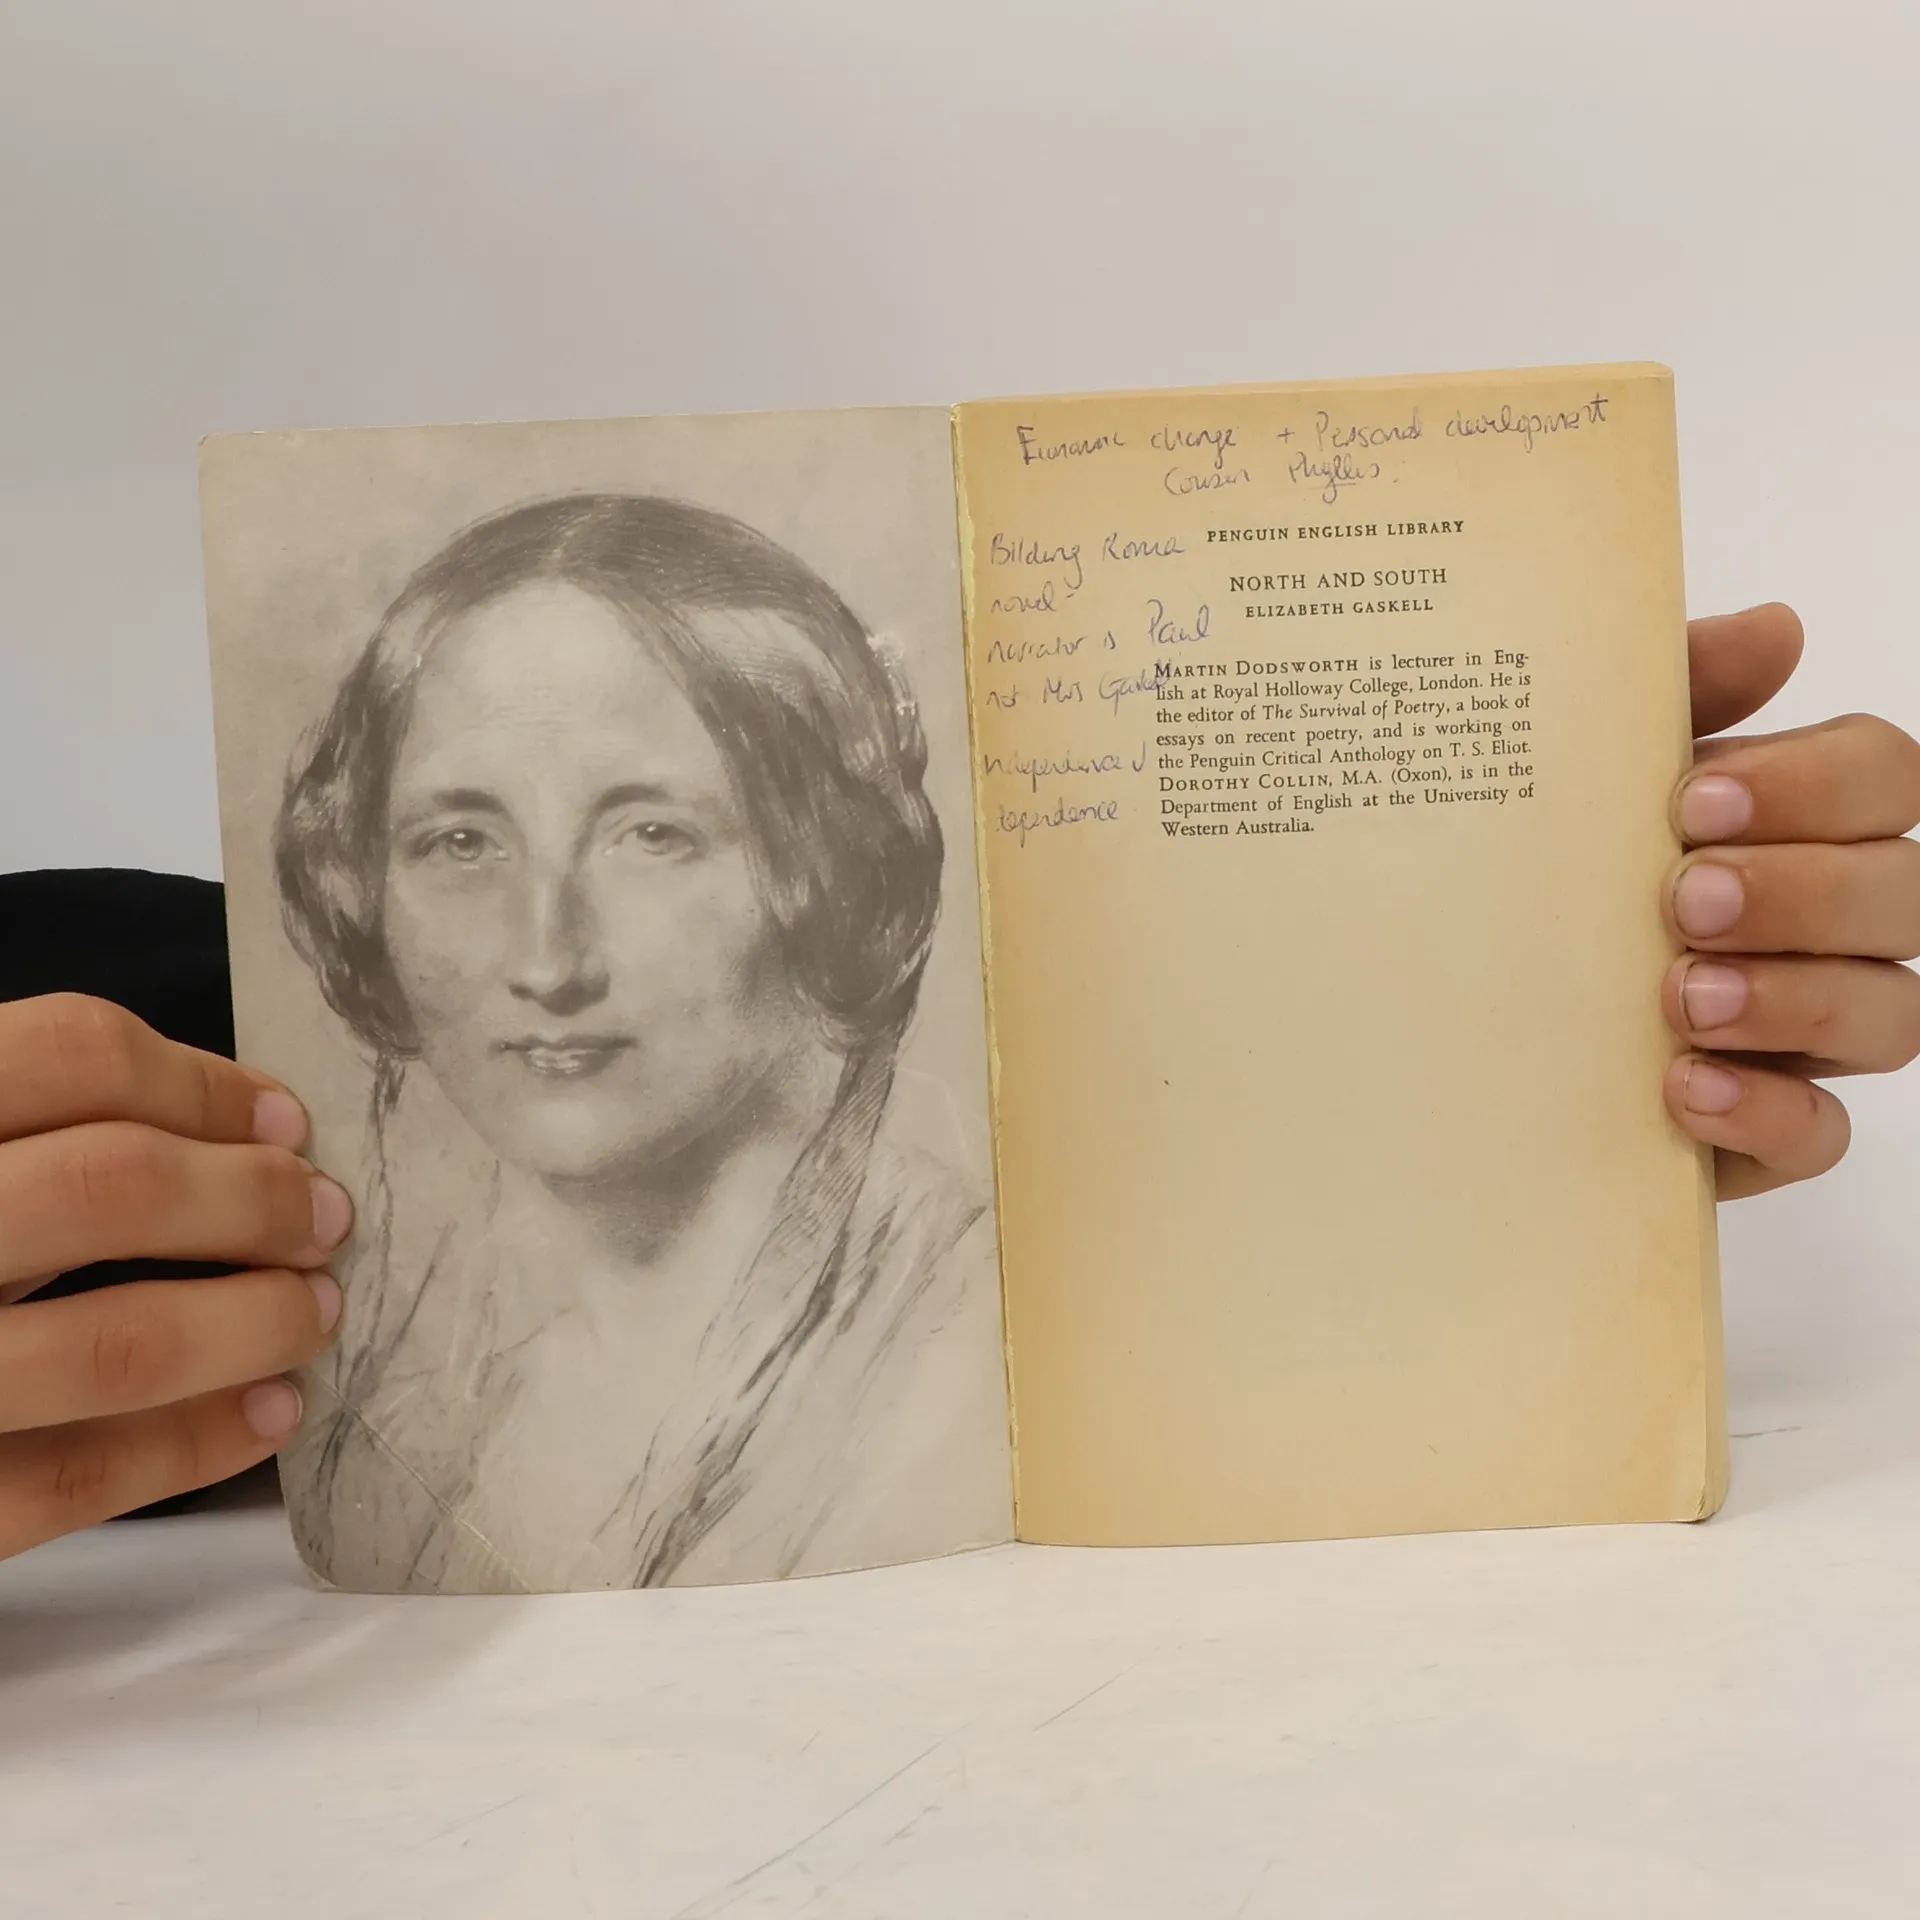 Economic change + Personal development
Cousin Phyllis.
Bildung Roma
novel -
narrator is Paul
not Mrs Gaskell
independence /
dependence
PENGUIN ENGLISH LIBRARY
NORTH AND SOUTH
ELIZABETH GASKELL
MARTIN DODSWORTH is lecturer in Eng-
lish at Royal Holloway College, London. He is
the editor of The Survival of Poetry, a book of
essays on recent poetry, and is working on
the Penguin Critical Anthology on T. S. Eliot.
DOROTHY COLLIN, M.A. (Oxon), is in the
Department of English at the University of
Western Australia.